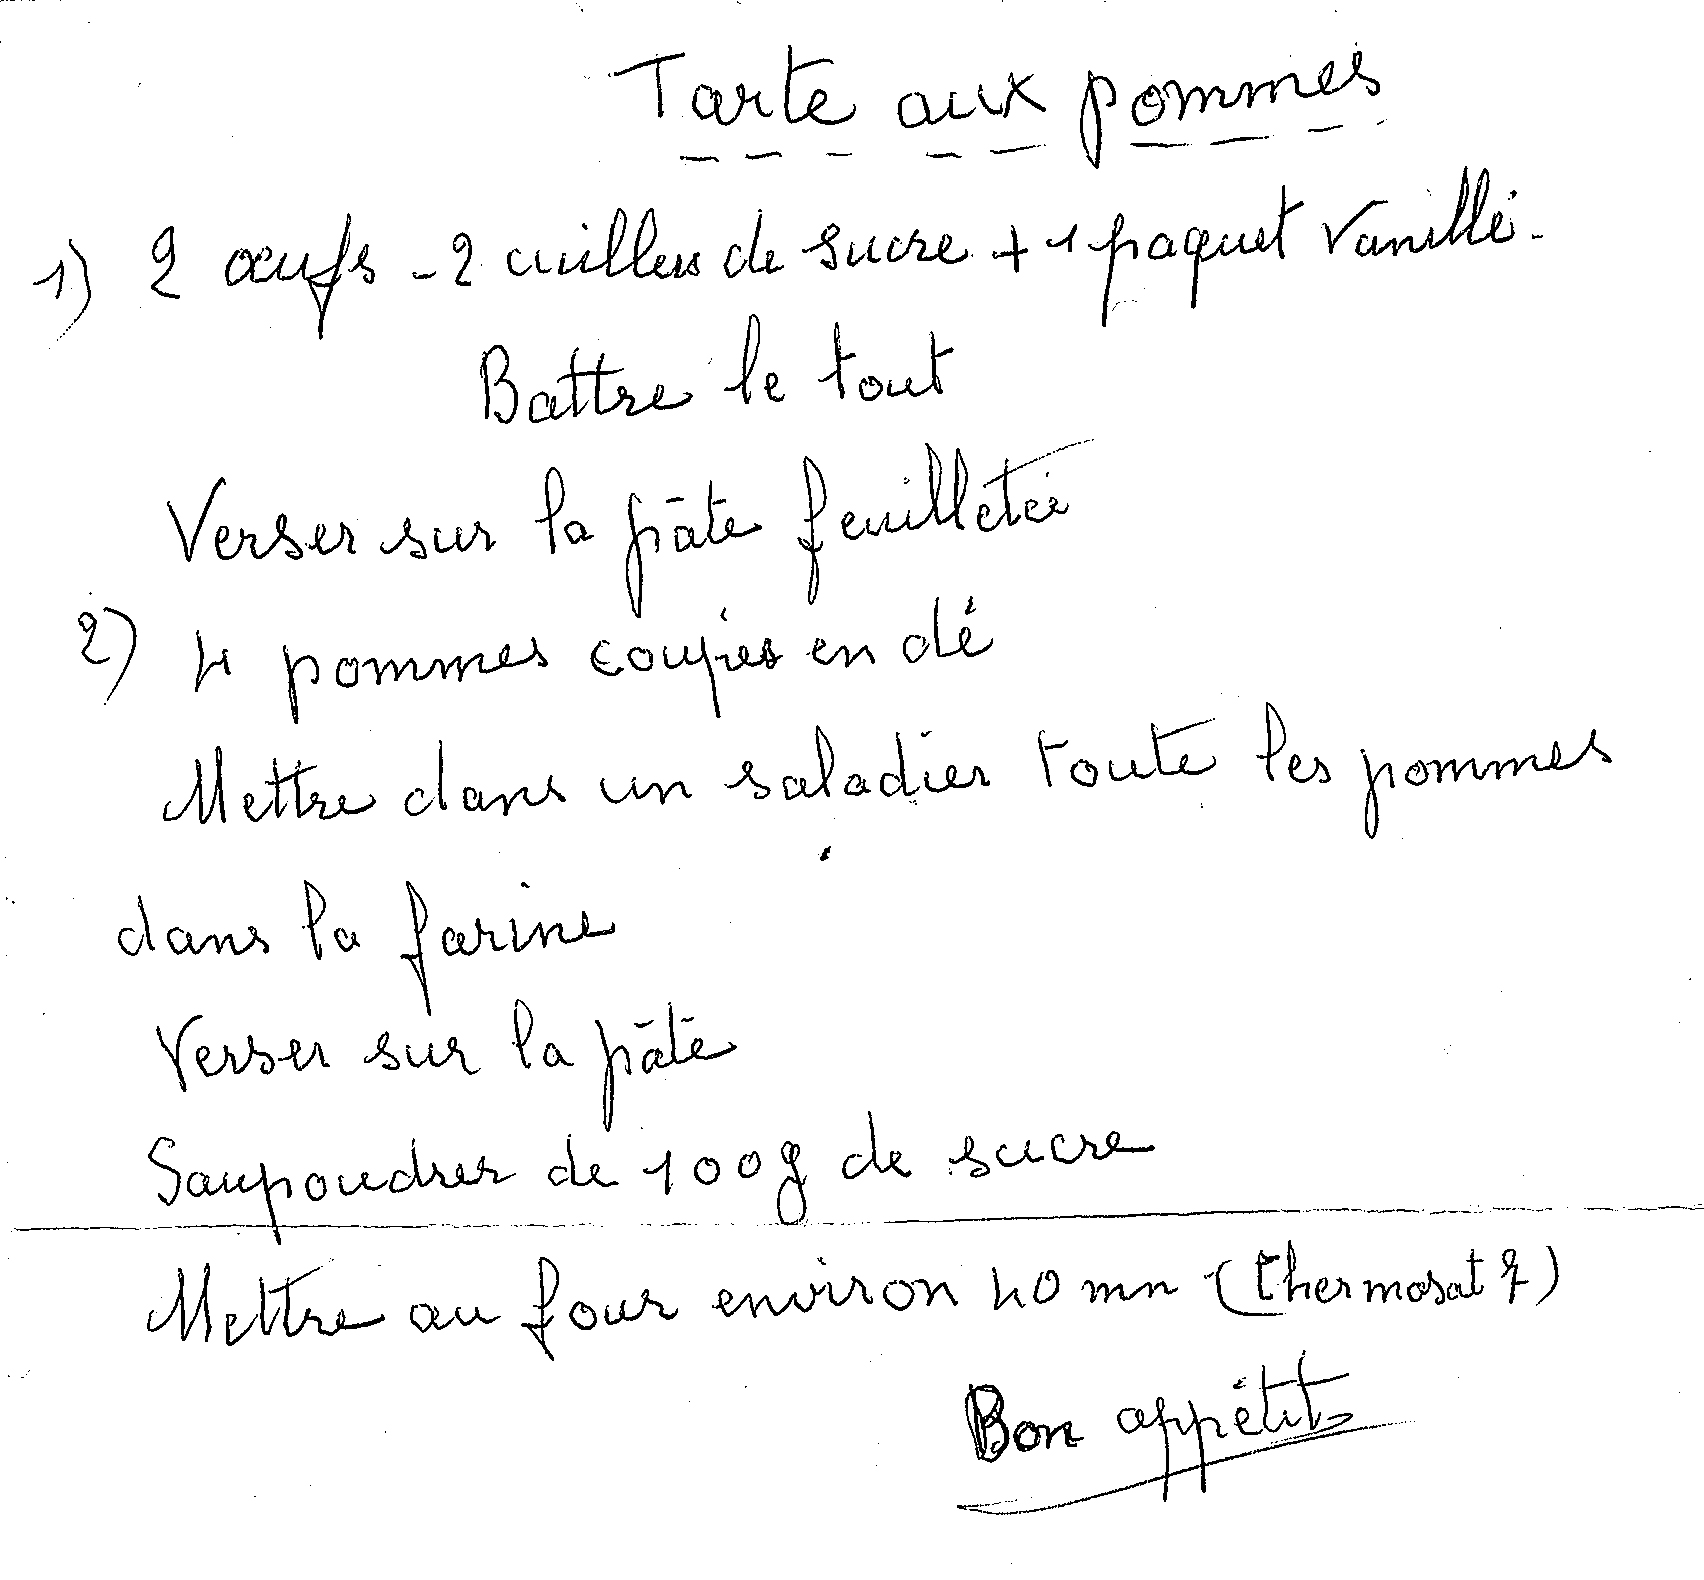 Tarte aux pommes
1) 2 œufs - 2 cuillers de sucre + 1 paquet vanillé.
Battre le tout
Verser sur la pâte feuilletée
2) 4 pommes coupées en dé
Mettre dans un saladier toute les pommes
dans la farine
Verser sur la pâte
Saupoudrer de 100g de sucre
Mettre au four environ 40 mn (thermosat 7)
Bon appétit